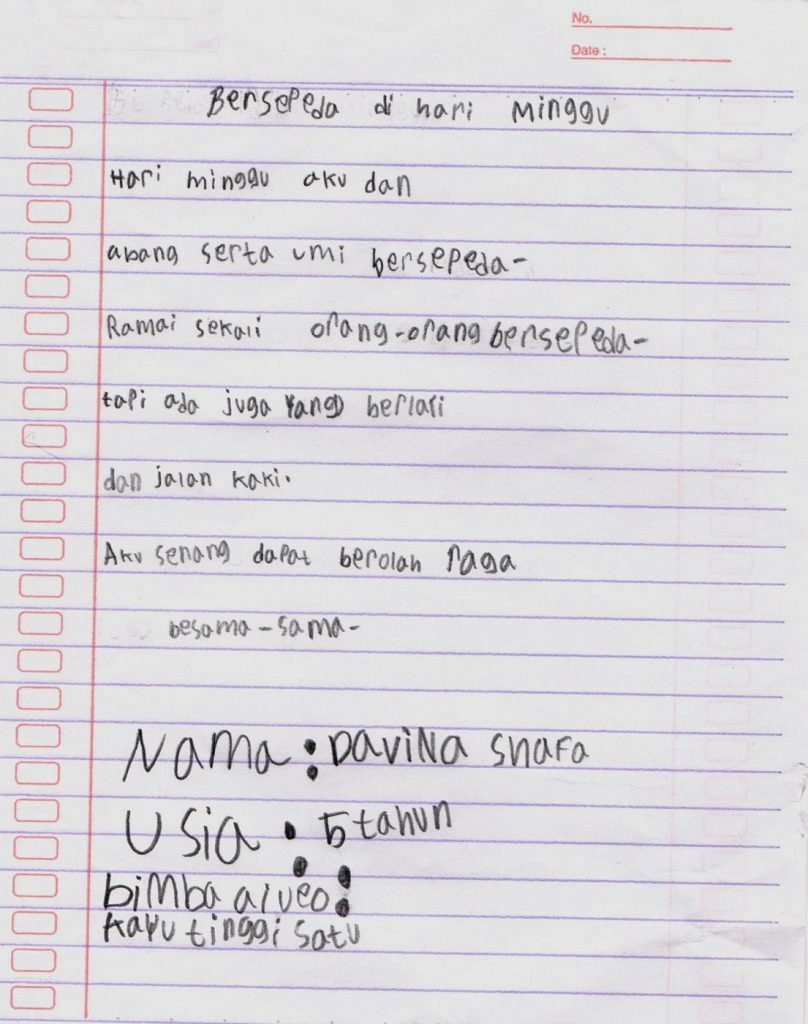 No.
Date :
Bersepeda di hari minggu
Hari minggu aku dan
abang serta umi bersepeda-
Ramai sekali orang-orang bersepeda-
tapi ada juga yang berlari
dan jalan kaki.
Aku senang dapat berolah raga
besama-sama-
Nama : DaviNa Shafa
Usia : 5 tahun
biMba aiueo :
kayu tinggi satu